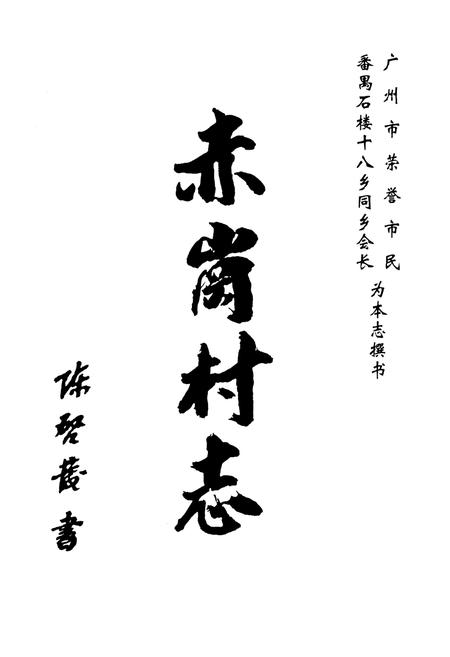 广州市荣誉市民
番禺石楼十八乡同乡会长
为本志撰书
赤岗村志
陈启 书